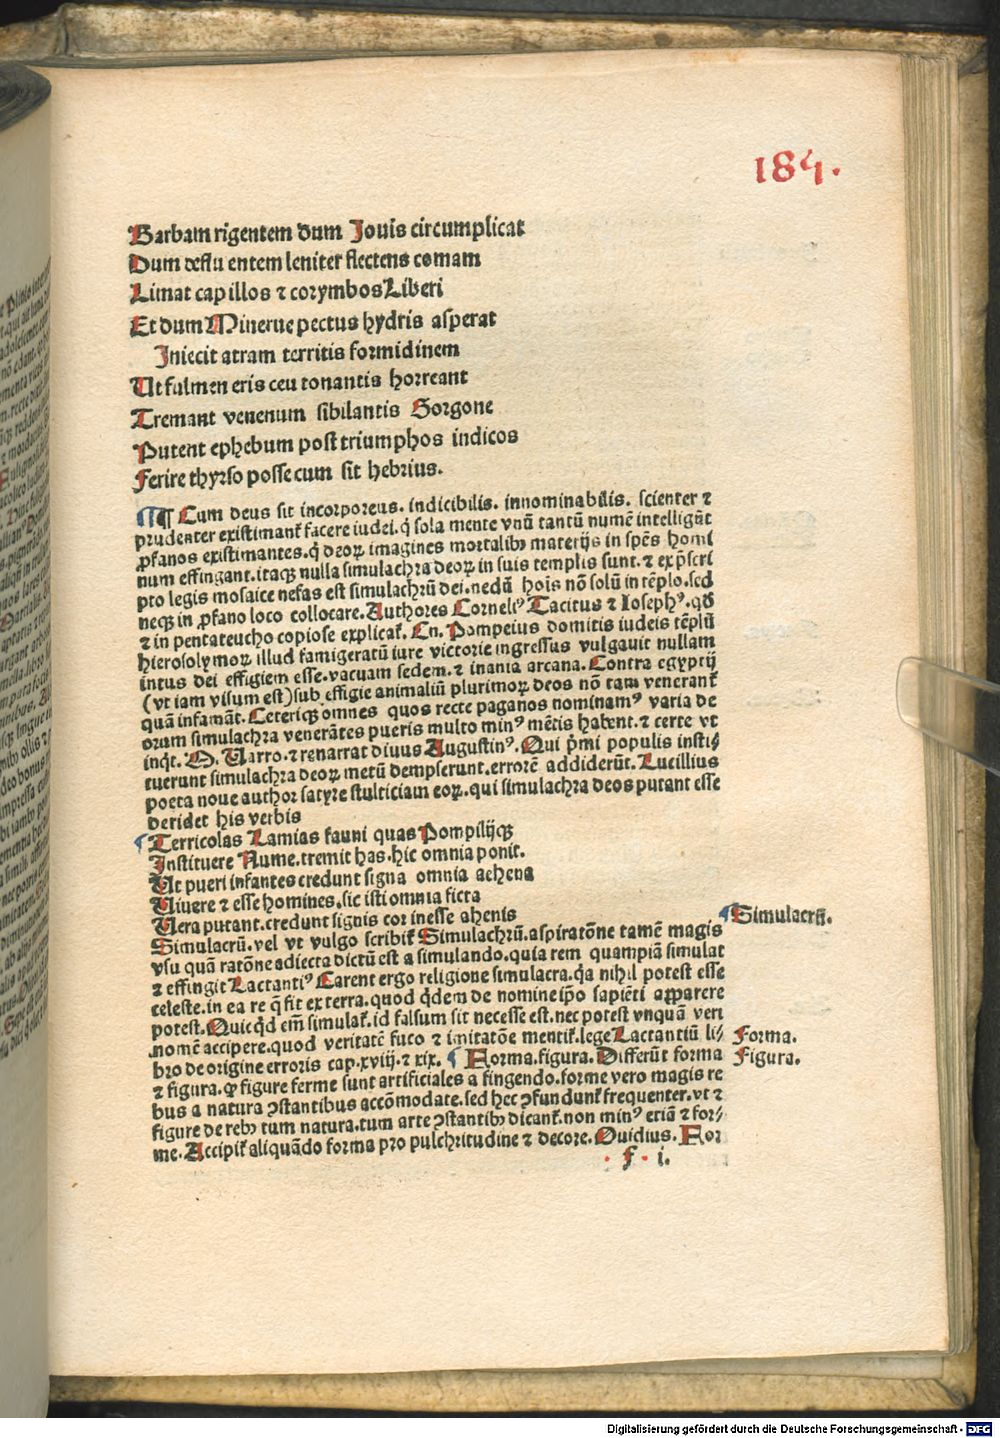 184.
Barbam rigentem dum Jouis circumplicat
Dum deflu entem leniter flectens comam
Limat capillos ⁊ corymbos Liberi
Et dum Minerue pectus hydris asperat
Iniecit atram territis formidinem
Ut fulmen eris ceu tonantis horreant
Tremant venenum sibilantis Gorgone
Putent ephebum post triumphos indicos
Ferire thyrso posse cum sit hebrius.
¶ Cum deus sit incorporeus. indicibilis. innominabilis. scienter ⁊
prudenter existimant᷑ facere iudei. q̇ sola mente vnū tantū numē intelligūt
ꝓfanos existimantes. q̇ deoꝝ imagines mortalibꝰ materijs in spēs homi
num effingant. itaqꝫ nulla simulachra deoꝝ in suis templis sunt. ⁊ ex p̄scri
pto legis mosaice nefas est simulachrū dei. nedū hoīs nō solū in tēplo. sed
necqꝫ in ꝓfano loco collocare. Authores Corneliꝰ Tacitus ⁊ Iosephꝰ. qđ
⁊ in pentateucho copiose explicat᷑. Cn. Pompeius domitis iudeis tēplū
hierosolymoꝝ illud famigeratū iure victorie ingressus vulgauit nullam
intus dei effigiem esse. vacuam sedem. ⁊ inania arcana. Contra egyptij
(vt iam visum est) sub effigie animaliū plurimoꝝ deos nō tam venerant᷑
quā infamāt. Ceteriqꝫ omnes quos recte paganos nominamꝰ varia de
orum simulachra venerātes pueris multo minꝰ mētis habent. ⁊ certe vt
inqt. M. Varro. ⁊ renarrat diuus Augustinꝰ. Qui p̄mi populis insti⸗
tuerunt simulachra deoꝝ metū dempserunt. errorē addiderūt. Lucillius
poeta noue author satyre stulticiam eoꝝ. qui simulachra deos putant esse
deridet his verbis
Terricolas Lamias fauni quas Pompilijqꝫ
Instituere Nume. tremit has. hic omnia ponit.
Ut pueri infantes credunt signa omnia aehena
Viuere ⁊ esse homines. sic isti omnia ficta
Vera putant. credunt signis cor inesse ahenis
Simulacrū. vel vt vulgo scribit᷑ Simulachrū. aspiratōne tamē magis
vsu quā ratōne adiecta dictū est a simulando. quia rem quampiā simulat
⁊ effingit Lactantiꝰ Carent ergo religione simulacra. qa nihil potest esse
celeste. in ea re q̄ fit ex terra. quod qdem de nomine ip̄o sapiēti apparere
potest. Quicqd em̄ simulat᷑. id falsum sit necesse est. nec potest vnquā veri
nomē accipere. quod veritatē fuco ⁊ imitatōe mentit᷑. lege Lactantiū li⸗
bro de origine erroris cap. xviij. ⁊ xix. ¶ Forma. figura. Differūt forma
⁊ figura. qꝫ figure ferme sunt artificiales a fingendo. forme vero magis re
bus a natura ꝯstantibus accōmodate. sed hec ꝯfundunt᷑ frequenter. vt ⁊
figure de rebꝰ tum natura. tum arte ꝯstantibꝰ dicant᷑. non minꝰ etiā ⁊ for⸗
me. Accipit᷑ aliquādo forma pro pulchritudine ⁊ decore. Ouidius. For
F i.
Simulacrū.
Forma.
Figura.
Digitalisierung gefördert durch die Deutsche Forschungsgemeinschaft - DFG